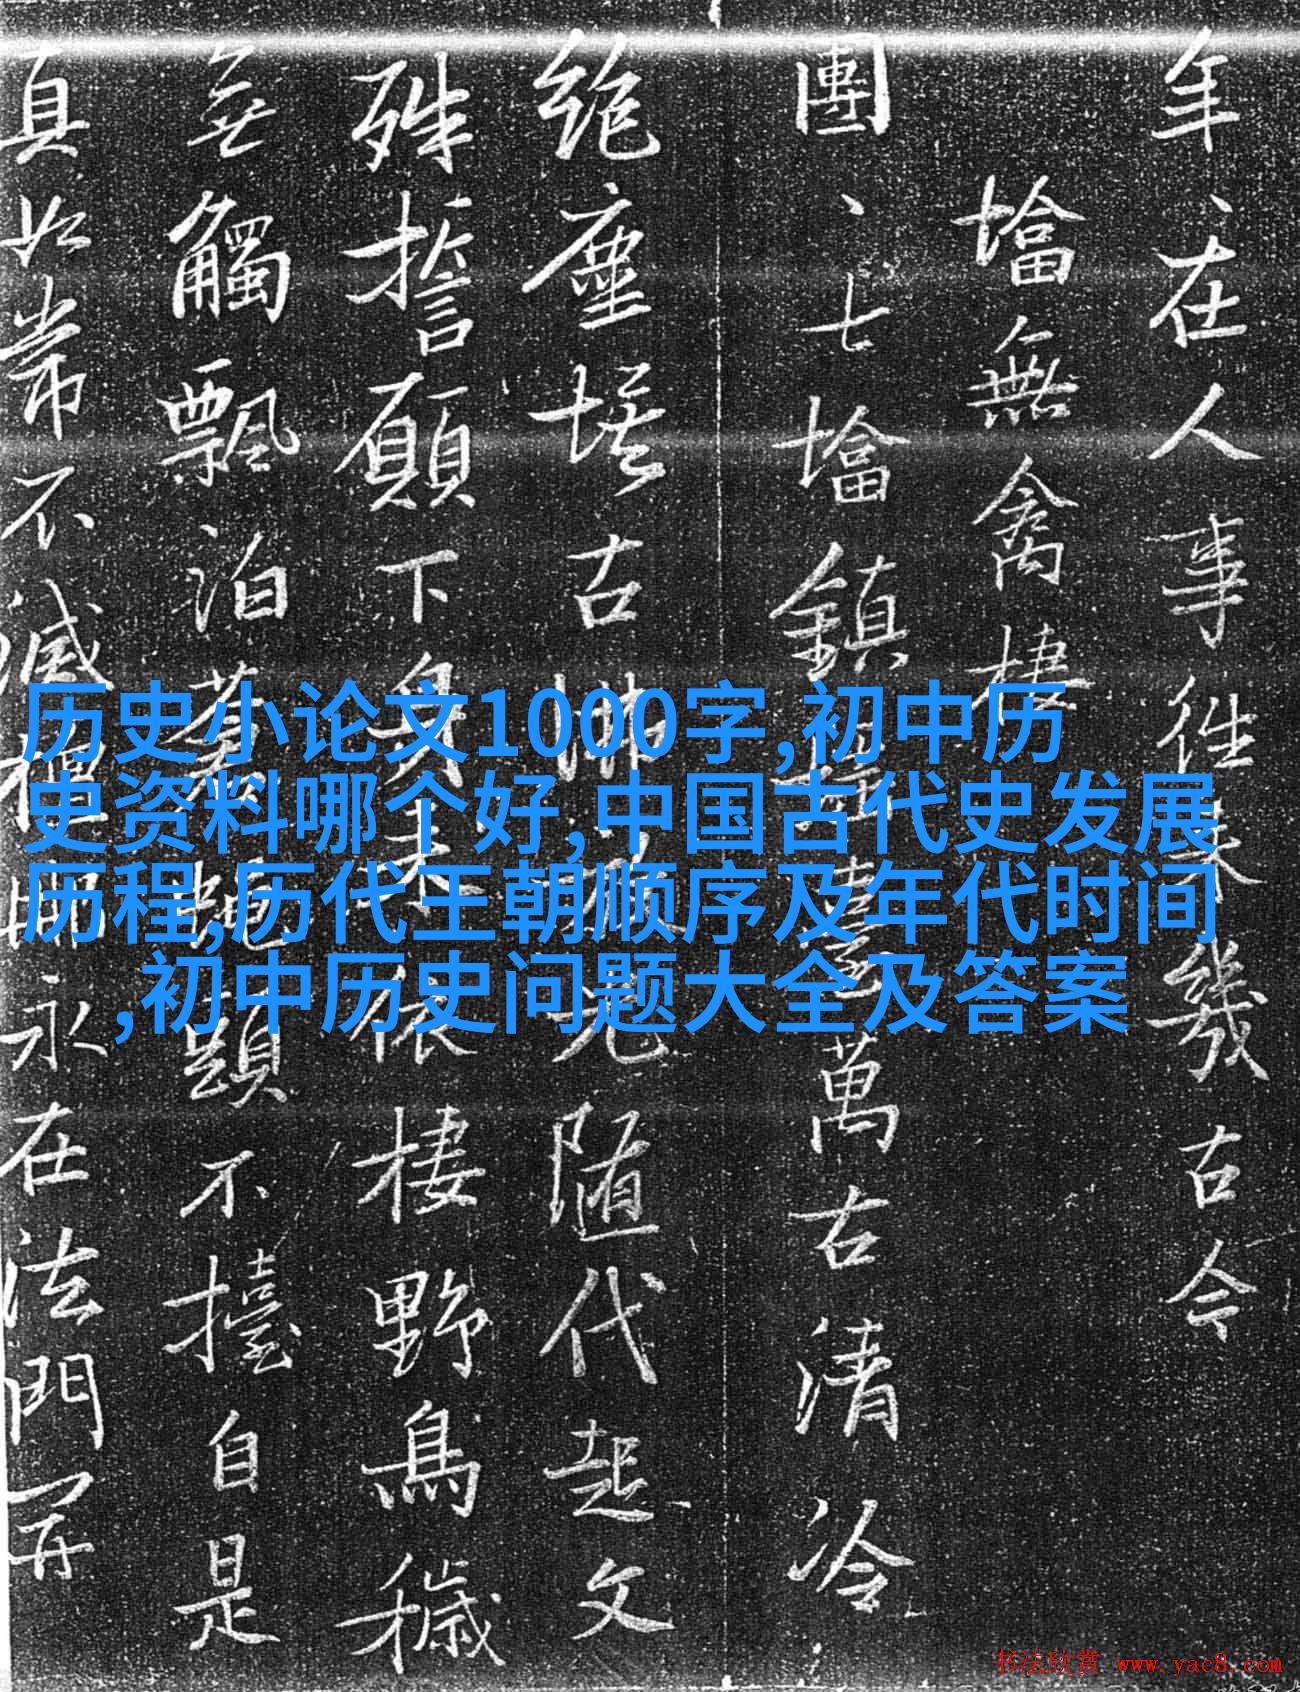 年、在人事往来幾古今
墖無禽棲
團、七墖鎮萬古清冷
絶塵埃古佛光随代起文
殊誓願下身来依棲野鳥穢
無觸飄泊蒼蠅題不擡自是
真如常不滅永在法門開
历史小论文1000字,初中历
史资料哪个好,中国古代史发展
历程,历代王朝顺序及年代时间
,初中历史问题大全及答案
书法欣赏 www.yac8.com